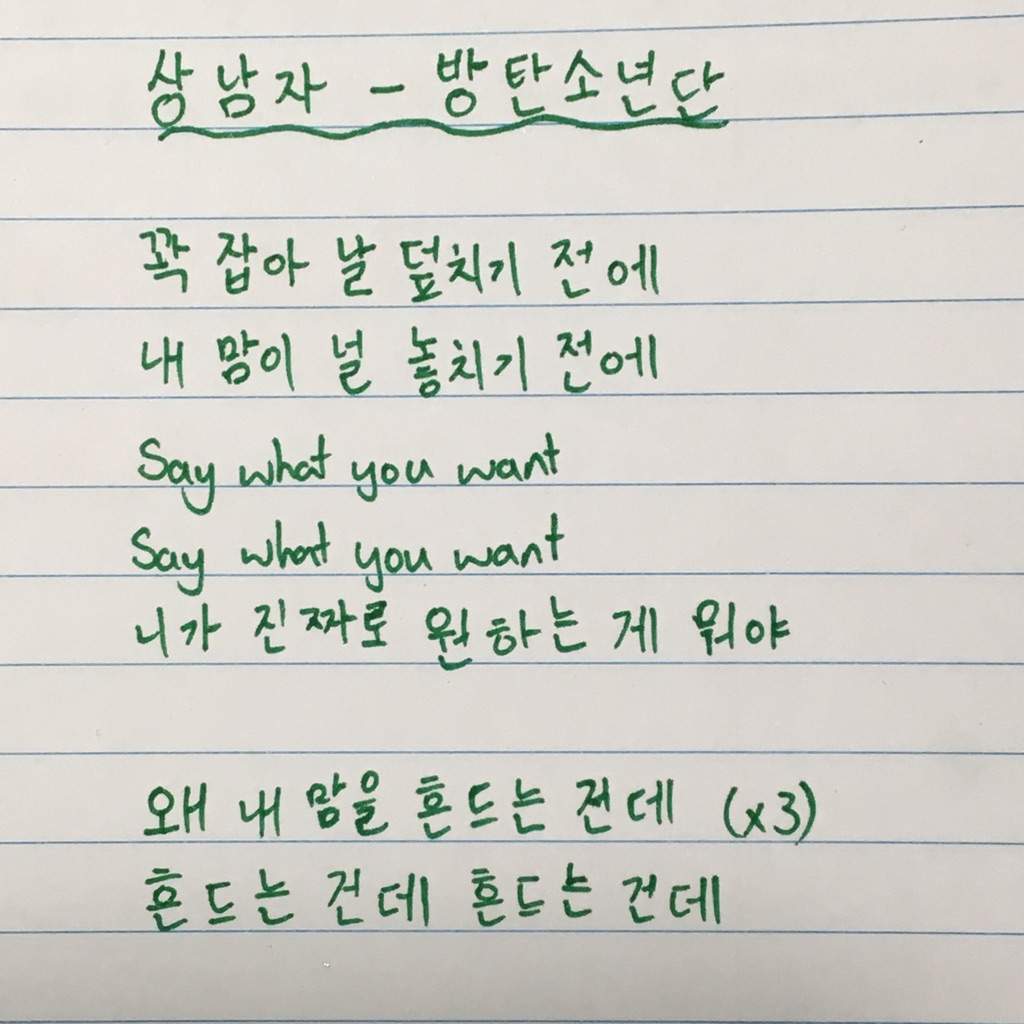 상남자 - 방탄소년단
꽉 잡아 날 덮치기 전에
내 맘이 널 놓치기 전에
Say what you want
Say what you want
니가 진짜로 원하는 게 뭐야
왜 내 맘을 흔드는 건데 (x3)
흔드는 건데 흔드는 건데